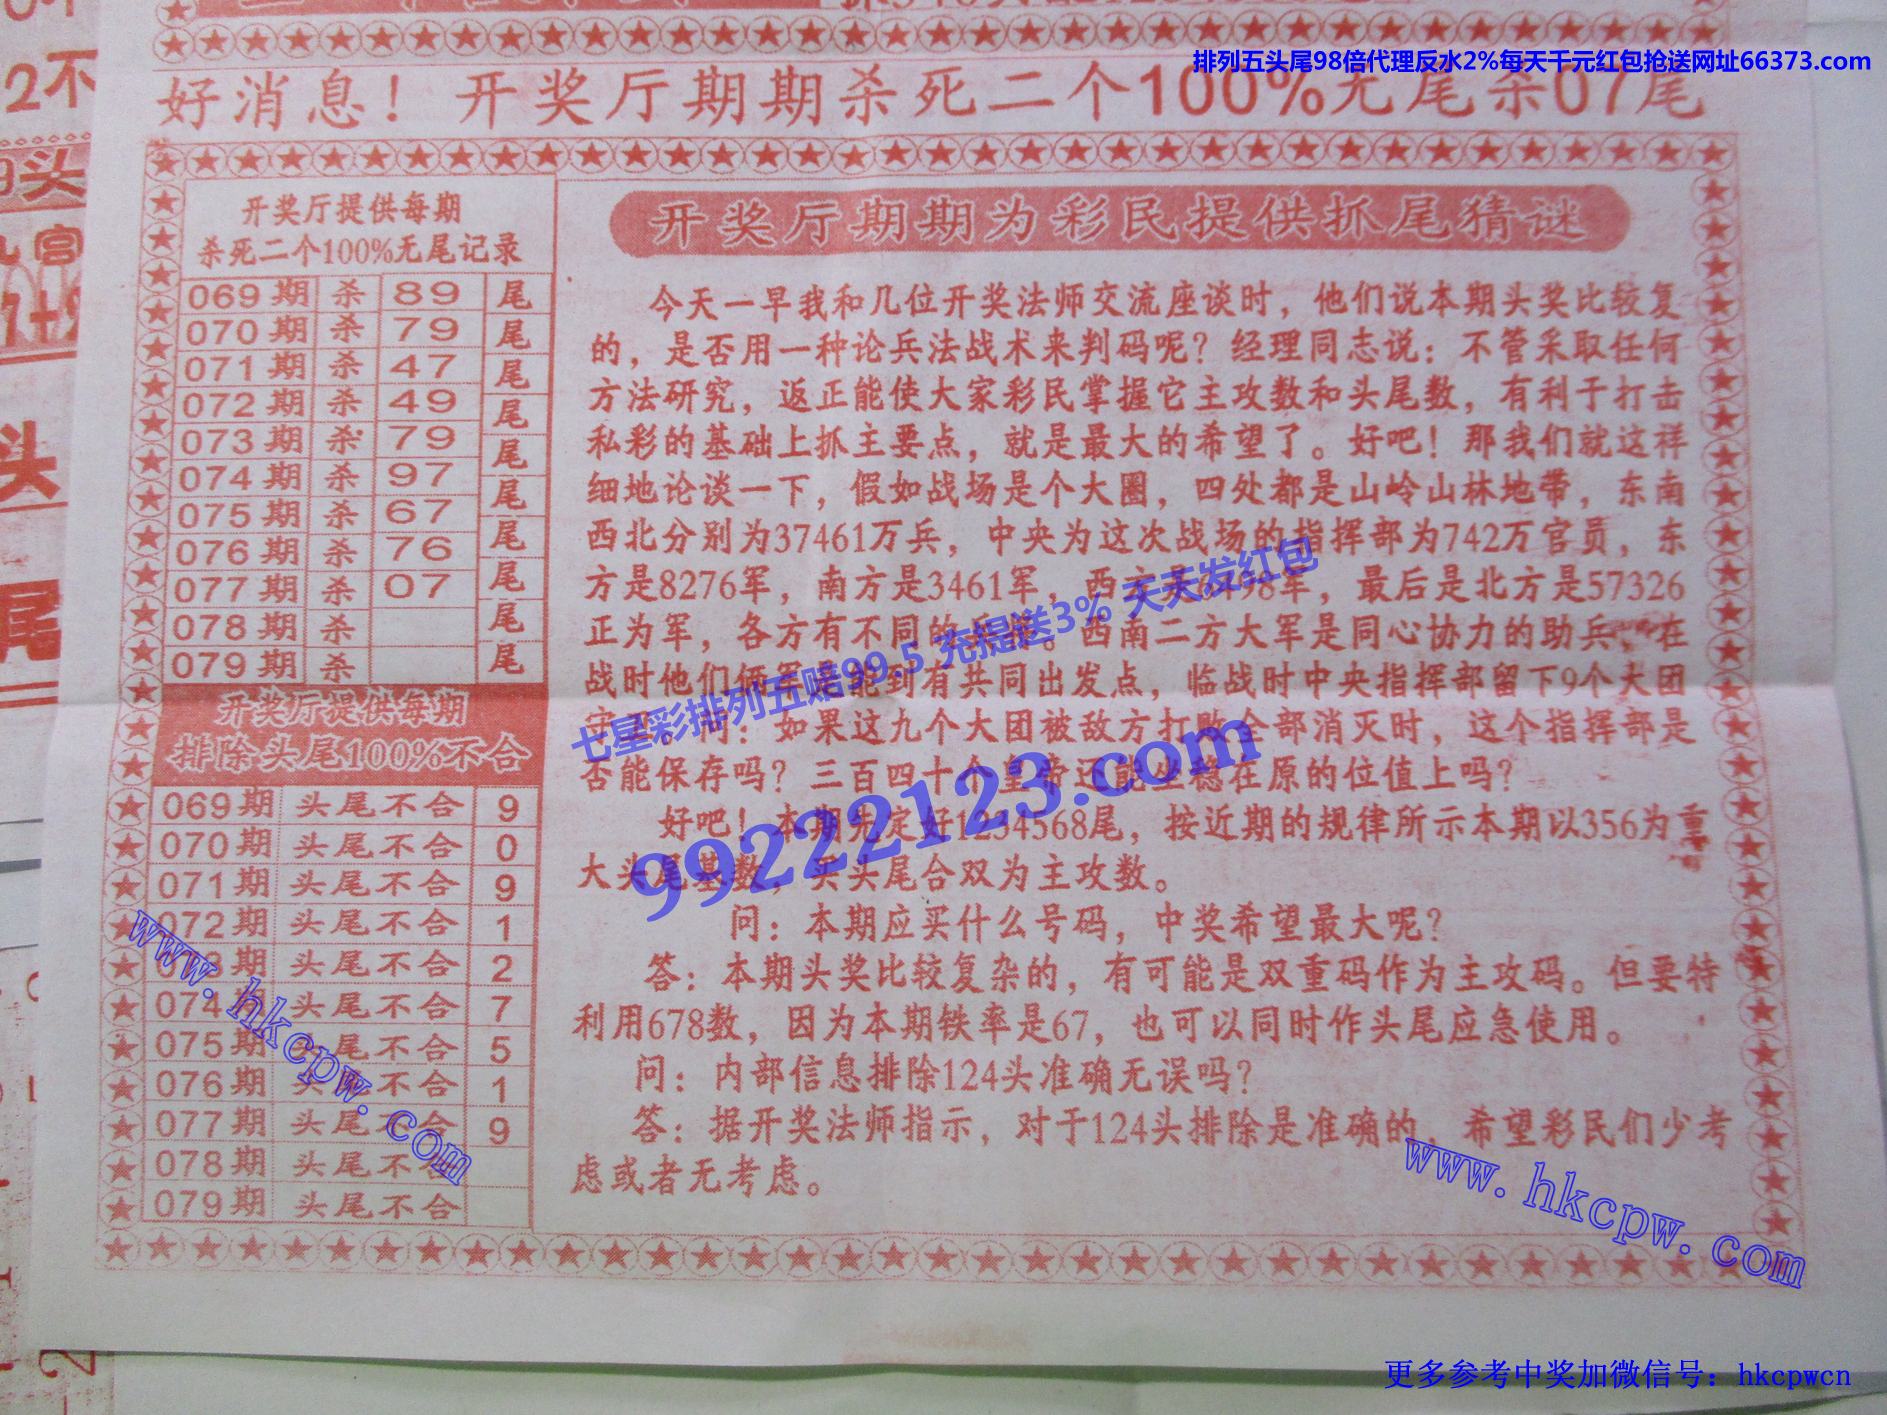 排列五头尾98倍代理反水2%每天千元红包抢送网址66373.com
好消息！开奖厅期期杀死二个100%无尾杀07尾
开奖厅提供每期
杀死二个100%无尾记录
069期 杀 89 尾
070期 杀 79 尾
071期 杀 47 尾
072期 杀 49 尾
073期 杀 79 尾
074期 杀 97 尾
075期 杀 67 尾
076期 杀 76 尾
077期 杀 07 尾
078期 杀 尾
079期 杀 尾
开奖厅提供每期
排除头尾100%不合
069期 头尾不合 9
070期 头尾不合 0
071期 头尾不合 9
072期 头尾不合 1
期 头尾不合 2
074期 头尾不合 7
075期 头尾不合 5
076期 头尾不合 1
077期 头尾不合 9
078期 头尾不合
079期 头尾不合
开奖厅期期为彩民提供抓尾猜谜
今天一早我和几位开奖法师交流座谈时，他们说本期头奖比较复
的，是否用一种论兵法战术来判码呢？经理同志说：不管采取任何
方法研究，返正能使大家彩民掌握它主攻数和头尾数，有利于打击
私彩的基础上抓主要点，就是最大的希望了。好吧！那我们就这样
细地论谈一下，假如战场是个大圈，四处都是山岭山林地带，东南
西北分别为37461万兵，中央为这次战场的指挥部为742万官员，东
方是8276军，南方是3461军，西方是 98军，最后是北方是57326
正为军，各方有不同的 。西南二方大军是同心协力的助兵，在
战时他们俩军是能到有共同出发点，临战时中央指挥部留下9个大团
守卫。问：如果这九个大团被敌方打败全部消灭时，这个指挥部是
否能保存吗？三百四十个皇帝还能坐稳在原的位值上吗？
好吧！本期先定好1234568尾，按近期的规律所示本期以356为重
大头尾基数，买头尾合双为主攻数。
问：本期应买什么号码，中奖希望最大呢？
答：本期头奖比较复杂的，有可能是双重码作为主攻码。但要特
利用678数，因为本期铁率是67，也可以同时作头尾应急使用。
问：内部信息排除124头准确无误吗？
答：据开奖法师指示，对于124头排除是准确的，希望彩民们少考
虑或者无考虑。
七星彩排列五赔99.5 充提送3% 天天发红包
99222123.com
www.hkcpw.com
www.hkcpw.com
更多参考中奖加微信号：hkcpwcn